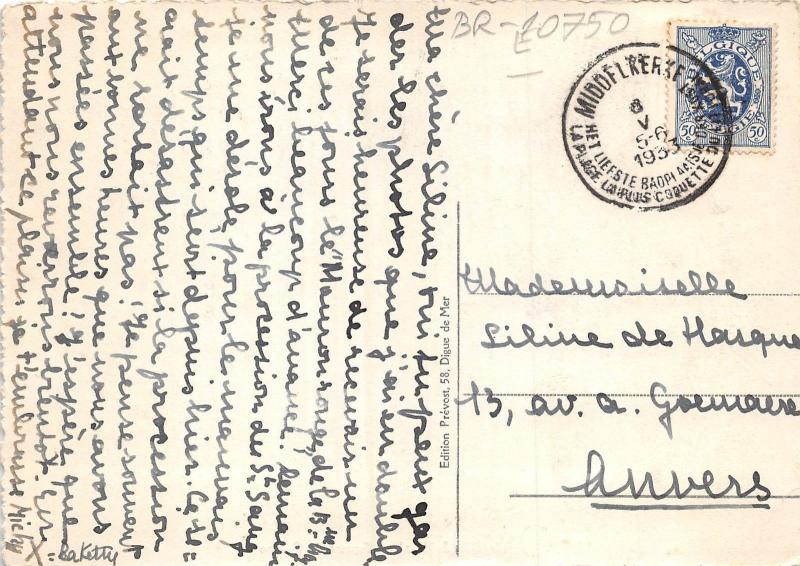 BR-10750
E
BELGIQUE
BELGIE
50 50
MIDDELKERKE
8
V
5-6
193
HET LIEFSTE BADPLAATS
LA PLAGE LA PLUS COQUETTE
Mademoiselle
Siline de Hasque
13, av. a. Goemaere
Anvers
Edition Prévost, 58, Digue de Mer
Ma chère Siline, oui tu peux gar
der les photos que j'ai en double
Je serais heureuse de recevoir un
de ces jours le "Mouron rouge" de la B
Merci beaucoup d'avance! Demain
nous irons à la procession du St Sang
je me désole, pour le mauvais
temps qui sert depuis hier. Ce se=
rait désastreux si la procession
ne sortait pas! Je pense souvent
aux bonnes heures que nous avons
passées ensemble! J'espère que
nous nous reverrons bientôt. En
attendant ce plaisir je t'embrasse Michy
X = Ba Ketty